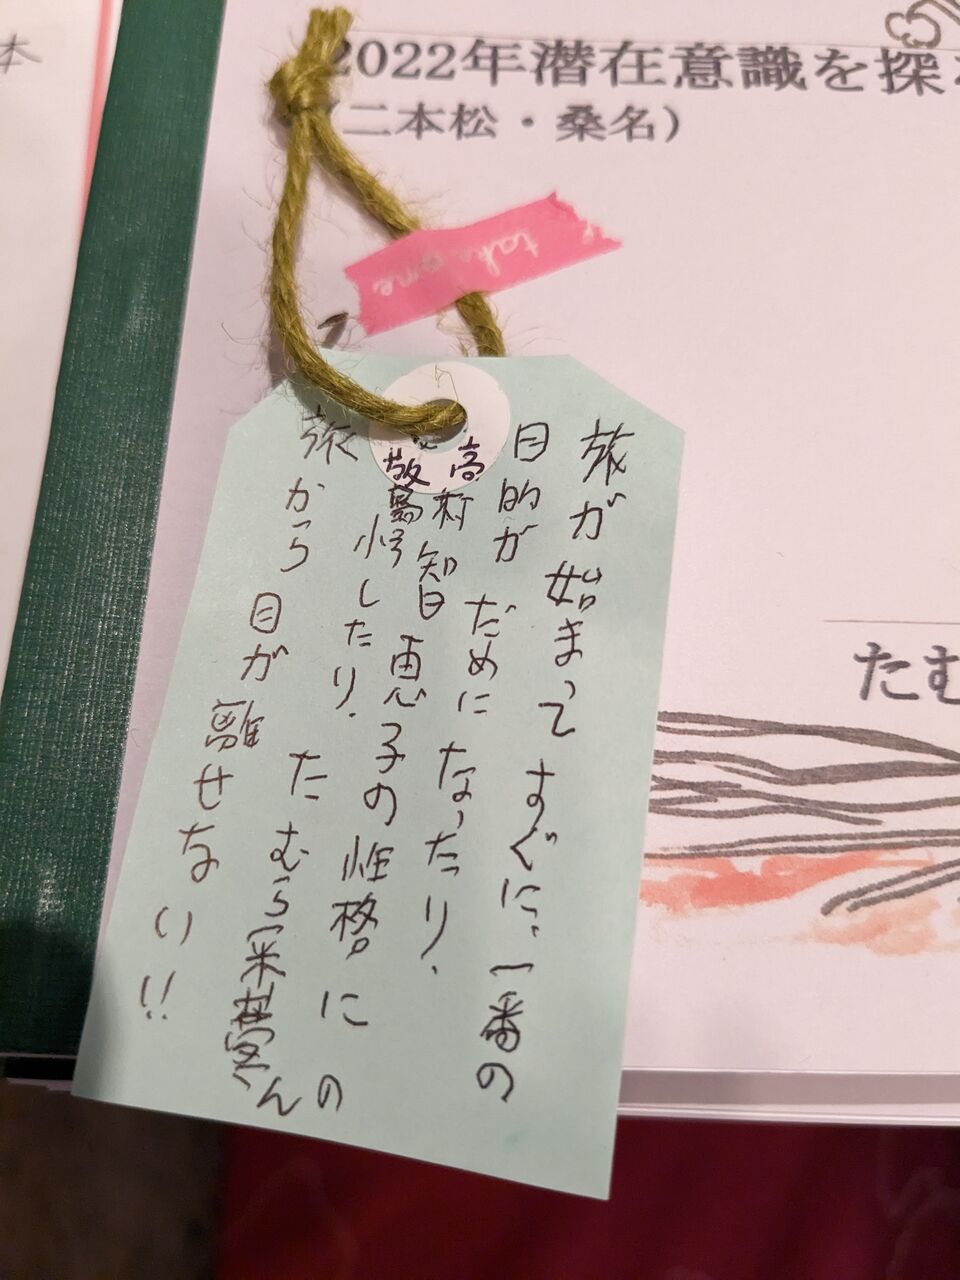 本
2022年潜在意識を探
(二本松・桑名)
take
たむ
旅が始まってすぐに、一番の
目的がだめになったり、
高村智恵子の性格に
驚愕したり、たむらさんの
旅から目が離せない!!